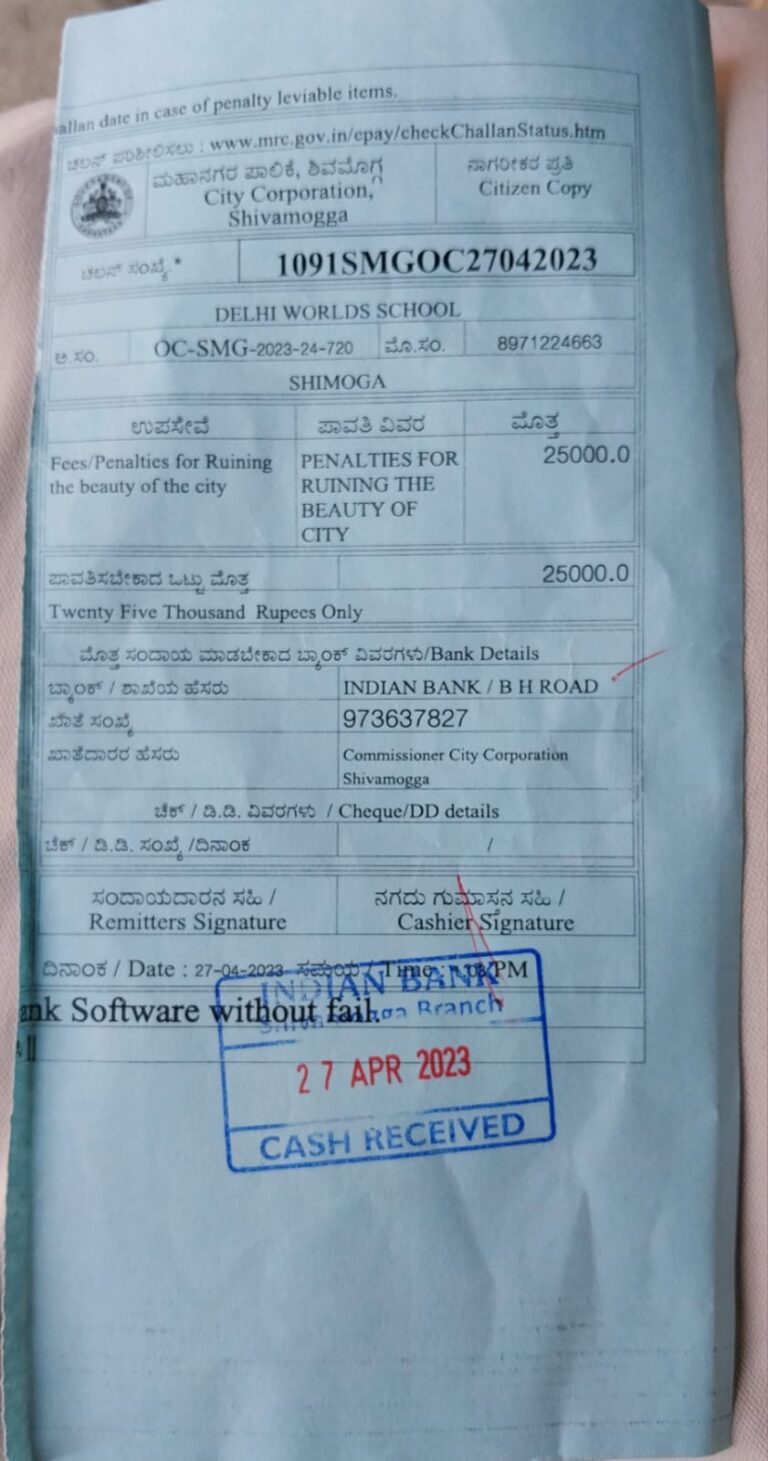 allan date in case of penalty leviable items.
ಚಲನ್ ಪರಿಶೀಲಿಸಲು : www.mrc.gov.in/epay/checkChallanStatus.htm
ಮಹಾನಗರ ಪಾಲಿಕೆ, ಶಿವಮೊಗ್ಗ
City Corporation,
Shivamogga
ನಾಗರೀಕರ ಪ್ರತಿ
Citizen Copy
ಚಲನ್ ಸಂಖ್ಯೆ.* 1091SMGOC27042023
DELHI WORLDS SCHOOL
ಅ.ಸಂ. OC-SMG-2023-24-720 ಮೊ.ಸಂ. 8971224663
SHIMOGA
ಉಪಸೇವೆ ಪಾವತಿ ವಿವರ ಮೊತ್ತ
Fees/Penalties for Ruining
the beauty of the city
PENALTIES FOR
RUINING THE
BEAUTY OF
CITY
25000.0
ಪಾವತಿಸಬೇಕಾದ ಒಟ್ಟು ಮೊತ್ತ 25000.0
Twenty Five Thousand Rupees Only
ಮೊತ್ತ ಸಂದಾಯ ಮಾಡಬೇಕಾದ ಬ್ಯಾಂಕ್ ವಿವರಗಳು/Bank Details
ಬ್ಯಾಂಕ್ / ಶಾಖೆಯ ಹೆಸರು INDIAN BANK / B H ROAD
ಖಾತೆ ಸಂಖ್ಯೆ 973637827
ಖಾತೆದಾರರ ಹೆಸರು Commissioner City Corporation
Shivamogga
ಚೆಕ್ / ಡಿ.ಡಿ. ವಿವರಗಳು / Cheque/DD details
ಚೆಕ್ / ಡಿ.ಡಿ. ಸಂಖ್ಯೆ /ದಿನಾಂಕ /
ಸಂದಾಯದಾರನ ಸಹಿ / ನಗದು ಗುಮಾಸನ ಸಹಿ /
Remitters Signature Cashier Signature
ದಿನಾಂಕ / Date : 27-04-2023 ಸಮಯ / Time : PM
ank Software without fail.
INDIAN BANK
Branch
27 APR 2023
CASH RECEIVED